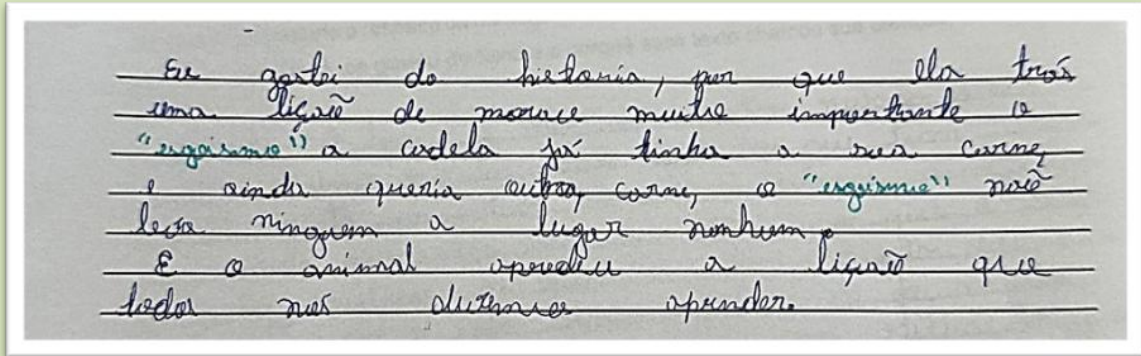 Eu gostei da historia, por que ela trás
uma liçaõ de morau muito importante o
"ergoismo" a cadela já tinha a sua carne,
e ainda queria outra, carne, o "ergoismo" naõ
leva ninguem a lugar nenhum.
E o animal apredeu a liçaõ que
todos nós devemos aprender.